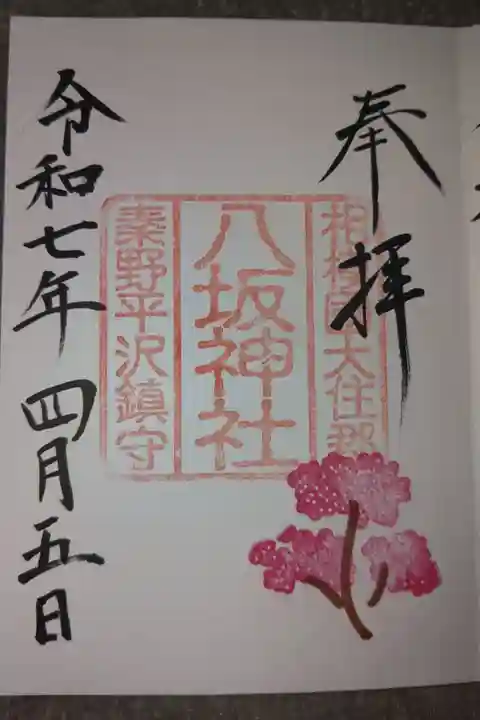 奉拝
相模国大住郡
八坂神社
秦野平沢鎮守
令和七年 四月五日